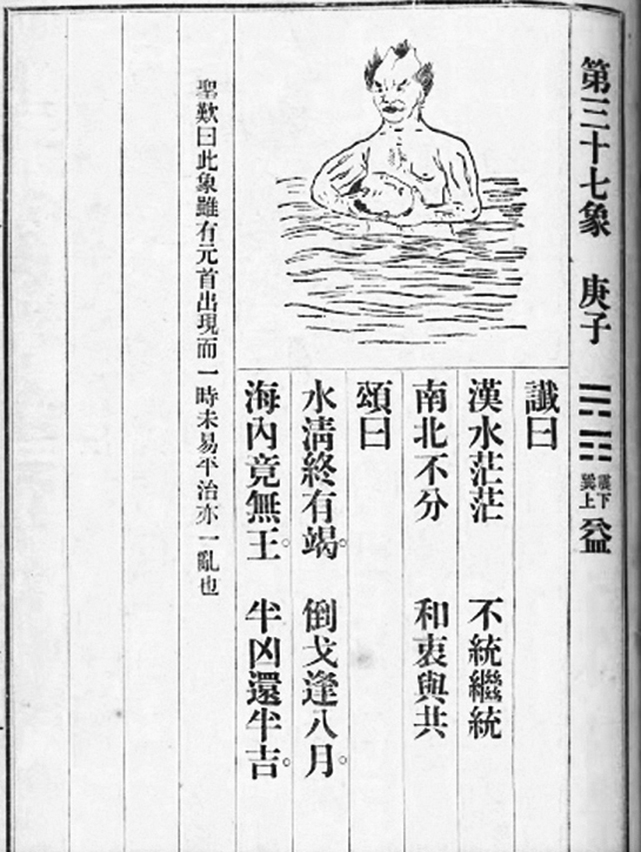 第三十七象 庚子 ䷩ 震下巽上 益
讖曰
漢水茫茫 不統繼統
南北不分 和衷與共
頌曰
水清終有竭。 倒戈逢八月。
海內竟無王。 半凶還半吉。
聖歎曰此象雖有元首出現而一時未易平治亦一亂也